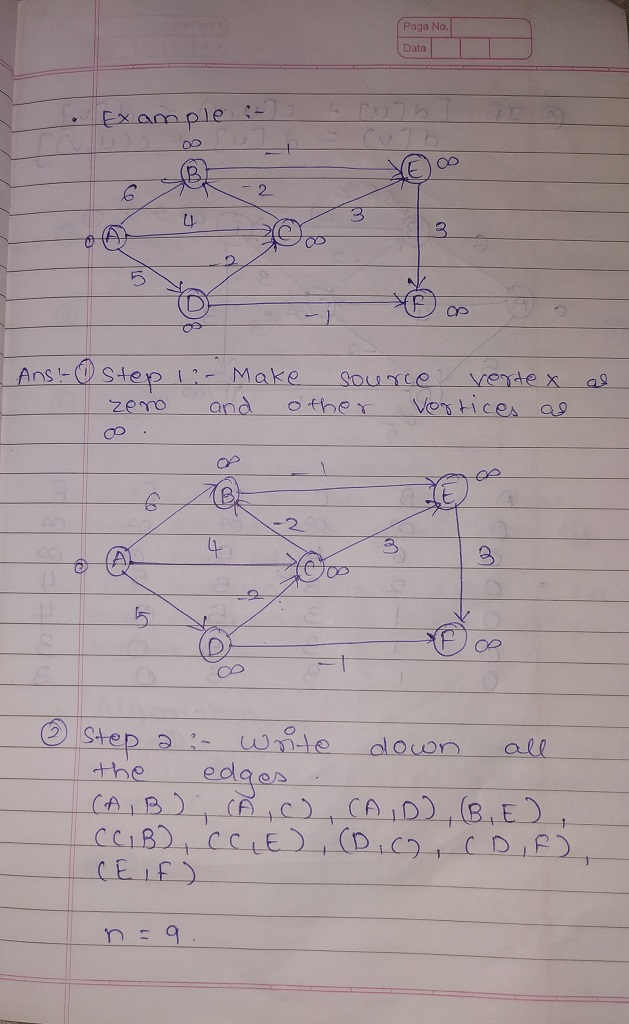 Page No.
Date
• Example :-
∞ -1
B E ∞
6 -2
4 3
0 A C ∞ 3
5 -2
D F ∞
∞ -1
Ans:- ① Step 1 :- Make source vertex as
zero and other vertices as
∞ .
∞ -1 ∞
B E
6 -2
4 3
0 A C ∞ 3
5 -2
D F ∞
∞ -1
② Step 2 :- Write down all
the edges .
(A,B) , (A,C) , (A,D) , (B,E) ,
(C,B) , (C,E) , (D,C) , (D,F) ,
(E,F)
n = 9 .